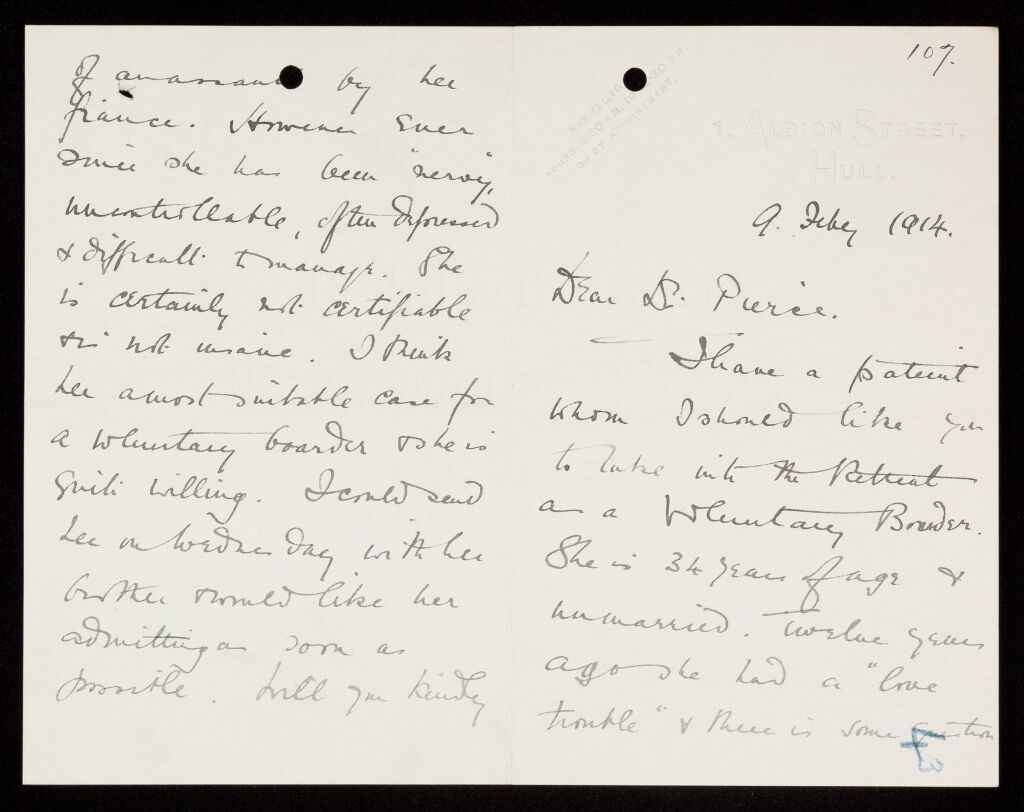 107.
NAT. TEL.
HOURS 9.30 A.M. TO
OR BY APPOINTMENT.
1. ALBION STREET.
HULL.
9. Feby 1914.
Dear Dr. Pierce.
I have a patient
whom I should like you
to take into the Retreat
as a Voluntary Boarder.
She is 34 years of age &
unmarried. Twelve years
ago she had a "love
trouble" & there is some question
of an assault by her
fiance. However ever
since she has been "nervy",
uncontrollable, often depressed
& difficult to manage. She
is certainly not certifiable
& is not insane. I think
her a most suitable case for
a voluntary boarder & she is
quite willing. I could send
her on Wednesday with her
brother & would like her
admitting as soon as
possible. Will you kindly